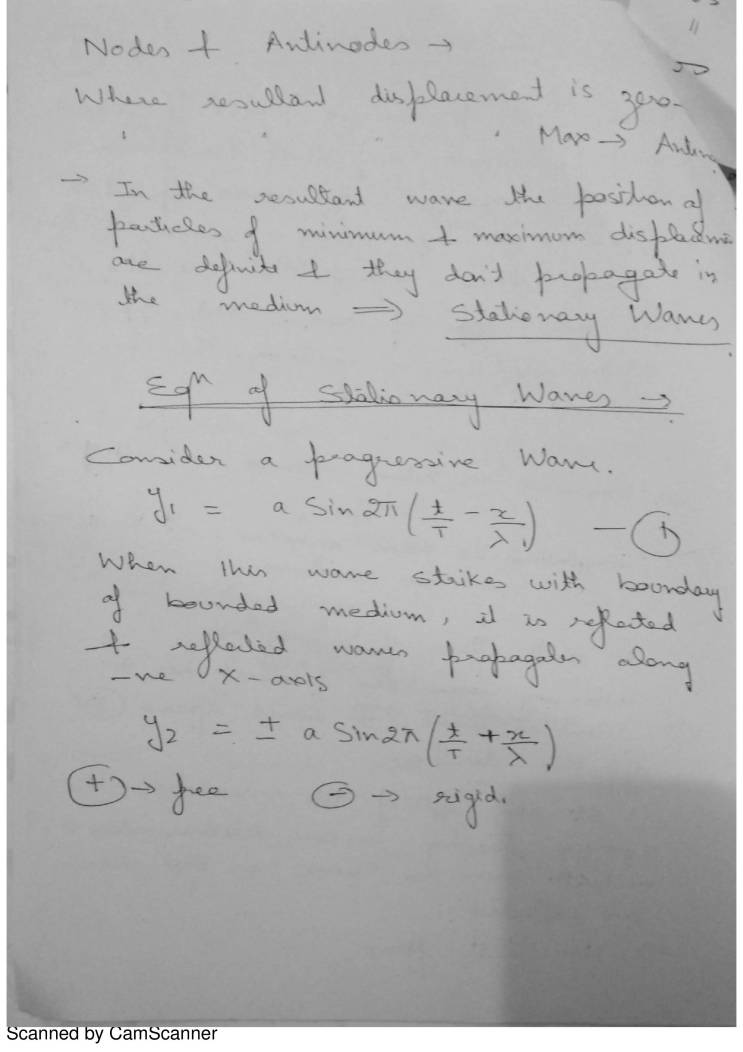 Nodes & Antinodes →
Where resultant displacement is zero.
" " " " Max → Antin
→ In the resultant wave the position of
particles of minimum & maximum displaceme
are definite & they don't propagate in
the medium ⇒ Stationary Waves
Eqn of Stationary Waves →
Consider a progressive Wave.
y₁ = a Sin 2π (t/T - x/λ) - ①
When this wave strikes with boundary
of bounded medium, it is reflected
& reflected waves propagates along
-ve X-axis
y₂ = ± a Sin 2π (t/T + x/λ)
⊕ → free ⊖ → rigid.
Scanned by CamScanner